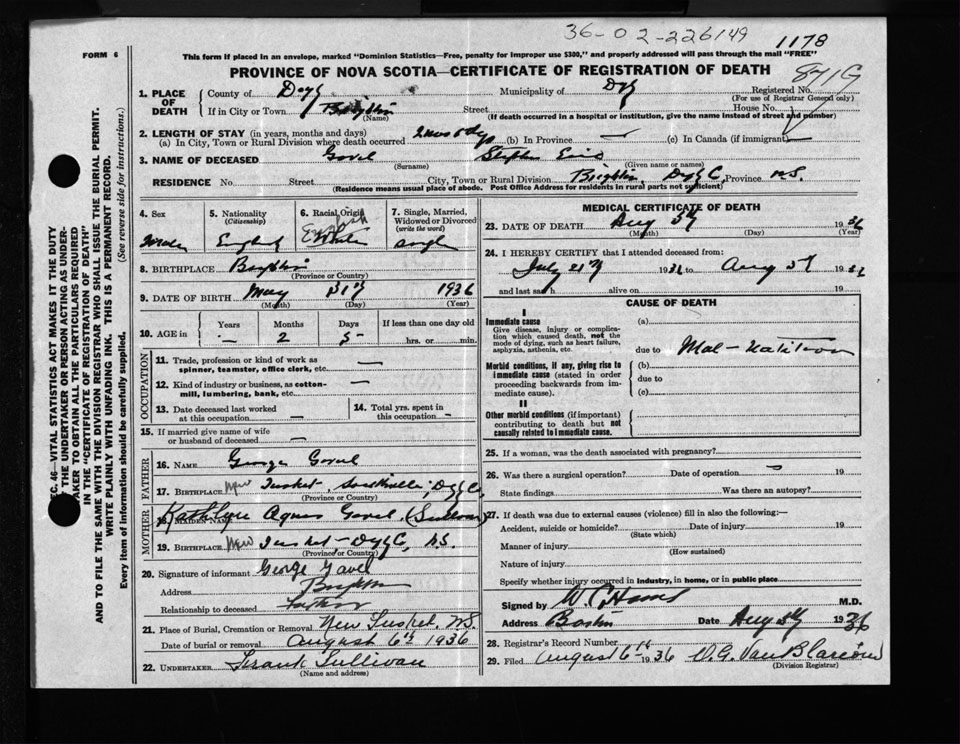 36-02-226149
1178
FORM 6
This form if placed in an envelope, marked "Dominion Statistics—Free, penalty for improper use $300," and properly addressed will pass through the mail "FREE"
PROVINCE OF NOVA SCOTIA—CERTIFICATE OF REGISTRATION OF DEATH
1. PLACE OF DEATH
County of Digby Municipality of Digby Registered No.
(For use of Registrar General only)
If in City or Town Brighton Street House No.
(Name) (If death occurred in a hospital or institution, give the name instead of street and number)
2. LENGTH OF STAY (in years, months and days)
(a) In City, Town or Rural Division where death occurred 2 mos 5 dys (b) In Province — (c) In Canada (if immigrant)
3. NAME OF DECEASED Gavel Stephen
(Surname) (Given name or names)
RESIDENCE No. Street City, Town or Rural Division Brighton, Digby C, Province N.S.
(Residence means usual place of abode. Post Office Address for residents in rural parts not sufficient)
4. Sex
5. Nationality (Citizenship)
English
6. Racial Origin
English
White
7. Single, Married, Widowed or Divorced (write the word)
Single
8. BIRTHPLACE Brighton
(Province or Country)
9. DATE OF BIRTH May 31st 1936
(Month) (Day) (Year)
10. AGE in Years Months Days If less than one day old
— 2 5 hrs. or min.
OCCUPATION
11. Trade, profession or kind of work as spinner, teamster, office clerk, etc. —
12. Kind of industry or business, as cotton-mill, lumbering, bank, etc. —
13. Date deceased last worked at this occupation —
14. Total yrs. spent in this occupation —
15. If married give name of wife or husband of deceased —
FATHER
16. NAME George Gavel
17. BIRTHPLACE New Tusket, Digby Co
(Province or Country)
MOTHER
18. MAIDEN NAME Agnes Gavel, (Sullivan)
19. BIRTHPLACE New Tusket—Digby C, N.S.
(Province or Country)
20. Signature of informant George Gavel
Address Brighton
Relationship to deceased Father
21. Place of Burial, Cremation or Removal New Tusket, N.S.
Date of burial or removal August 6th 1936
22. UNDERTAKER Frank Sullivan
(Name and address)
MEDICAL CERTIFICATE OF DEATH
23. DATE OF DEATH Aug 5th 1936
(Month) (Day) (Year)
24. I HEREBY CERTIFY that I attended deceased from:
July 21st 1936 to Aug 5th 1936
and last saw h alive on 19
CAUSE OF DEATH
I
Immediate cause
Give disease, injury or complication which caused death, not the mode of dying, such as heart failure, asphyxia, asthenia, etc.
(a)
due to Mal-nutrition
Morbid conditions, if any, giving rise to immediate cause (stated in order proceeding backwards from immediate cause).
(b)
due to
(c)
II
Other morbid conditions (if important) contributing to death but not causally related to immediate cause.
25. If a woman, was the death associated with pregnancy?
26. Was there a surgical operation? Date of operation 19
State findings Was there an autopsy?
27. If death was due to external causes (violence) fill in also the following:—
Accident, suicide or homicide? Date of injury 19
(State which)
Manner of injury
(How sustained)
Nature of injury
Specify whether injury occurred in Industry, in home, or in public place
Signed by M.D.
Address Date Aug 5th 1936
28. Registrar's Record Number
29. Filed August 6th 1936 (Division Registrar)
SEC. 46—VITAL STATISTICS ACT MAKES IT THE DUTY OF THE UNDERTAKER OR PERSON ACTING AS UNDERTAKER TO OBTAIN ALL THE PARTICULARS REQUIRED IN THE "CERTIFICATE OF REGISTRATION OF DEATH" AND TO FILE THE SAME WITH THE DIVISION REGISTRAR WHO SHALL ISSUE THE BURIAL PERMIT.
WRITE PLAINLY WITH UNFADING INK. THIS IS A PERMANENT RECORD.
Every item of information should be carefully supplied. (See reverse side for instructions.)